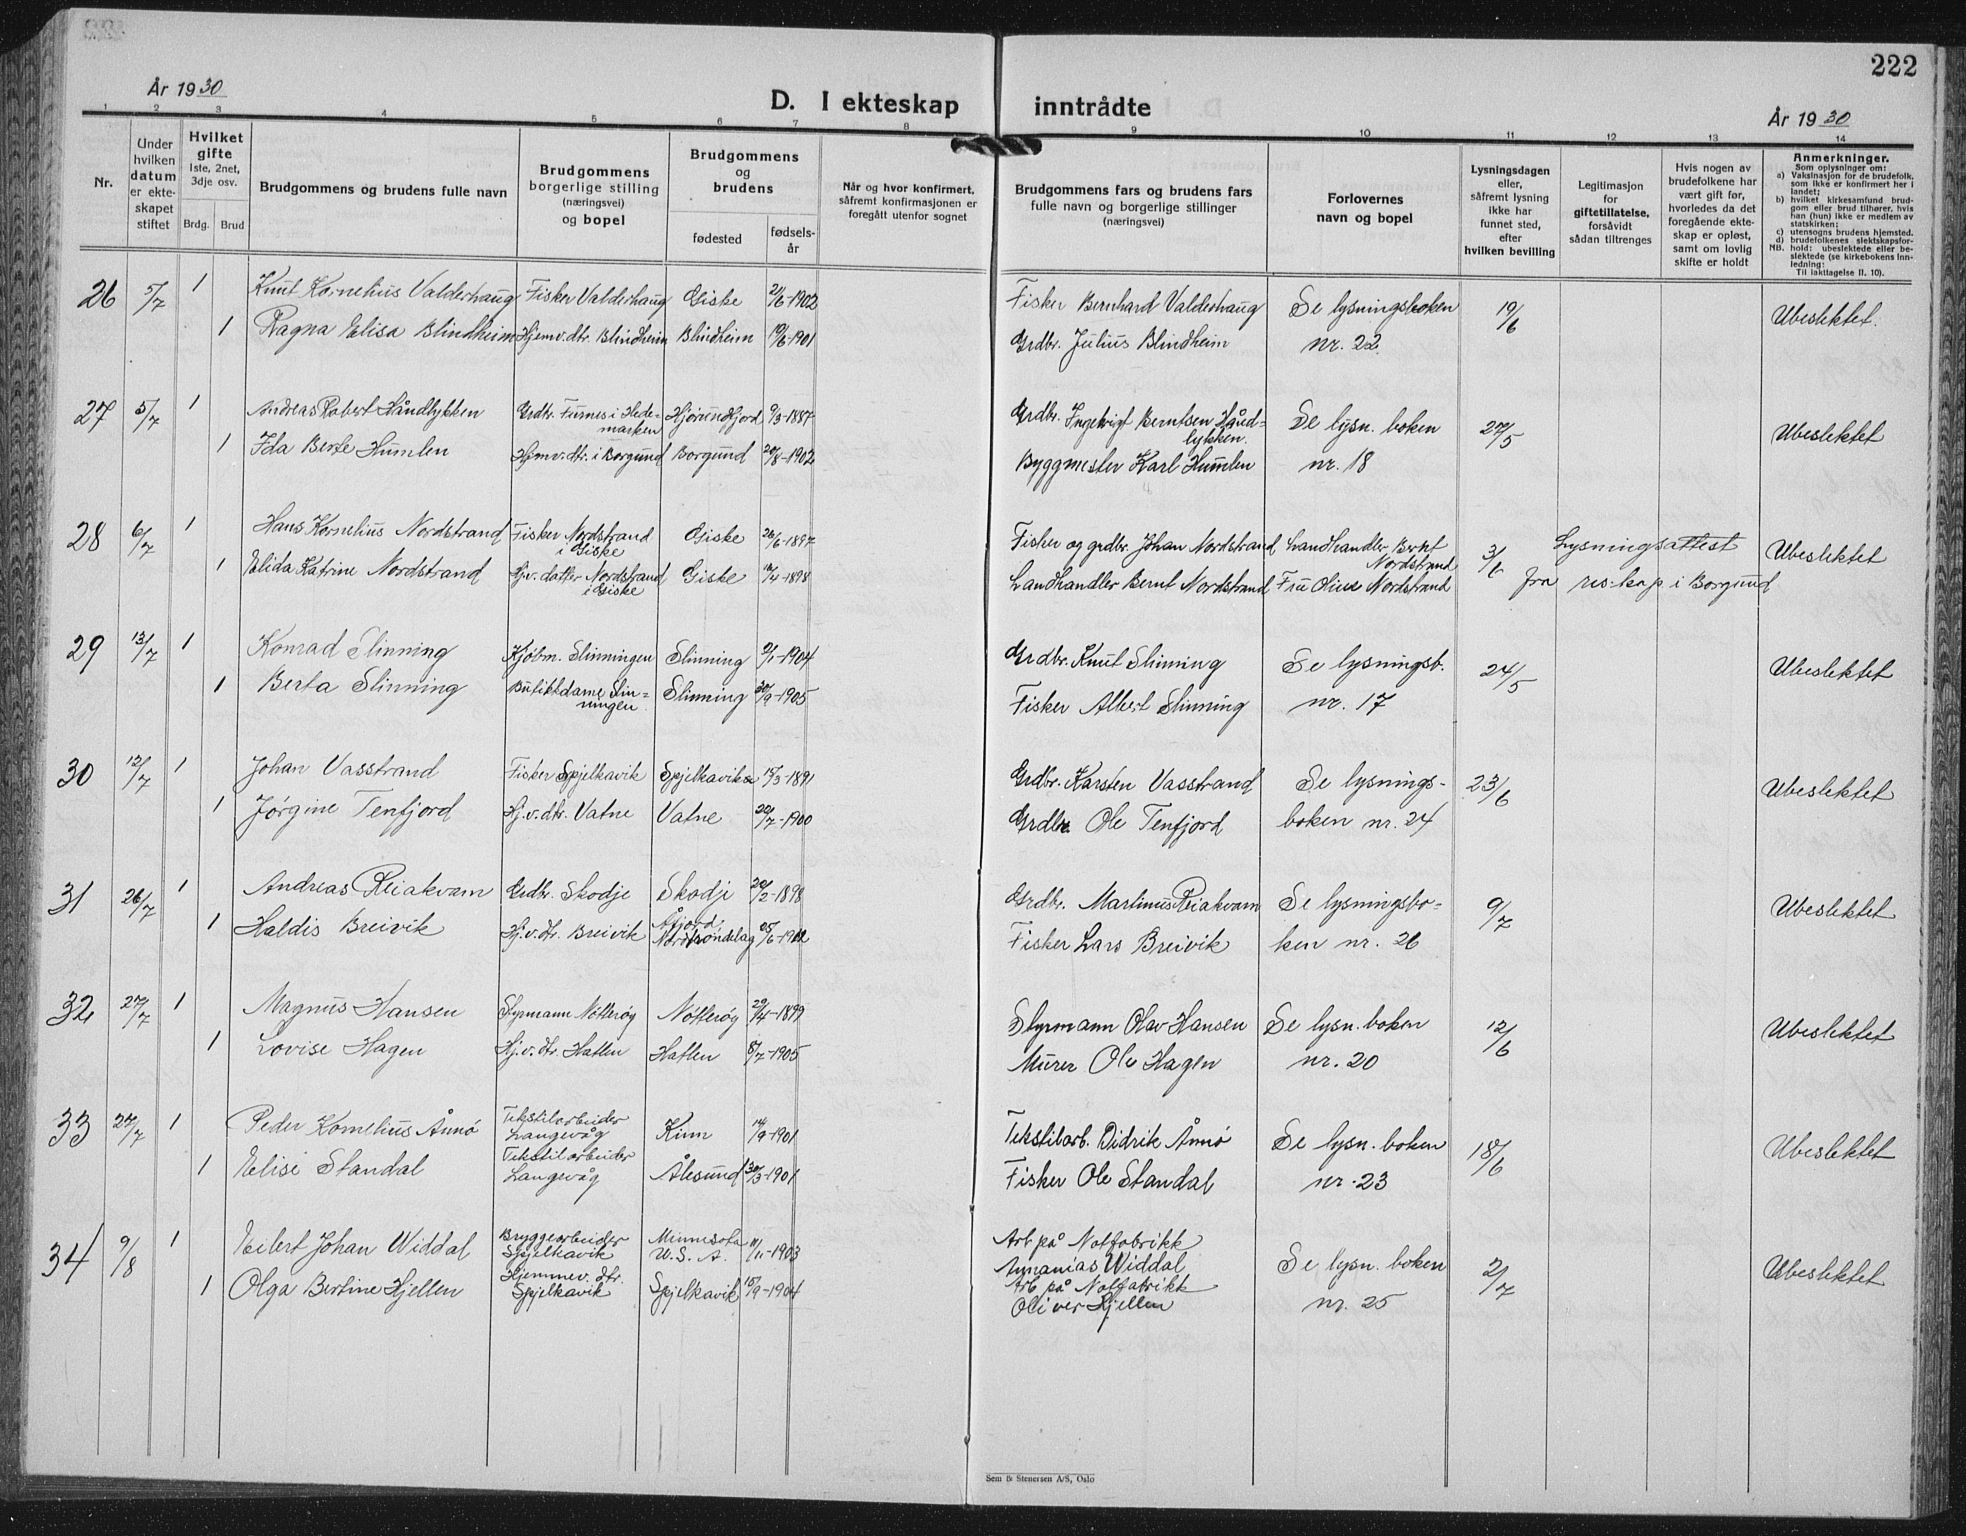 222
År 1930
D. I ekteskap inntrådte
År 1930
1 2 3 4 5 6 7 8 9 10 11 12 13 14
Nr.
Under hvilken datum er ekteskapet stiftet
Hvilket gifte
1ste, 2net, 3dje osv.
Brdg. Brud
Brudgommens og brudens fulle navn
Brudgommens borgerlige stilling (næringsvei) og bopel
Brudgommens og brudens
fødested
fødselsår
Når og hvor konfirmert, såfremt konfirmasjonen er foregått utenfor sognet
Brudgommens fars og brudens fars fulle navn og borgerlige stillinger (næringsvei)
Forlovernes navn og bopel
Lysningsdagen eller, såfremt lysning ikke har funnet sted, efter hvilken bevilling
Legitimasjon for giftetillatelse, forsåvidt sådan tiltrenges
Hvis nogen av brudefolkene har vært gift før, hvorledes da det foregående ekteskap er opløst, samt om lovlig skifte er holdt
Anmerkninger.
Som oplysninger om:
a) Vaksinasjon for de brudefolk, som ikke er konfirmert her i landet;
b) hvilket kirkesamfund brudgom eller brud tilhører, hvis han (hun) ikke er medlem av statskirken;
c) utensogns brudens hjemsted.
d) brudefolkenes slektskapsforhold: ubeslektede eller beslektede (se kirkebokens Innledning:
NB.
Til iakttagelse II. 10).
26 5/7 1 Knut Kornelius Valderhaug Fisker Valderhaug Giske 2/6-1902 Fisker Bernhard Valderhaug Se lysningsboken 19/6 Ubeslektet.
1 Ragna Elisa Blindheim Hjemv. dtr. Blindheim Blindheim 19/6-1901 Grdbr. Julius Blindheim nr. 22.
27 5/7 1 Andreas Robert Håndlykken Grdbr. Furnes i Hedemarken Hjørundfjord 9/3-1887 Grdbr. Ingebrigt Berntsen Håndlykken. Se lysn. boken 27/5 Ubeslektet
1 Ida Berte Humlen Hjemv. dtr. i Borgund Borgund 20/8-1902 Byggmester Karl Humlen nr. 18
28 6/7 1 Hans Kornelius Nordstrand Fisker Nordstrand i Giske Giske 26/6-1897 Fisker og grdbr. Johan Nordstrand Landhandler Bernt Nordstrand 3/6 Lysningsattest Ubeslektet
1 Elida Katrine Nordstrand Hjv. datter Nordstrand i Giske Giske 12/4-1898 Landhandler Bernt Nordstrand Fru Oline Nordstrand fra res.kap i Borgund
29 13/7 1 Konrad Slinning Kjøbm. Slinningen Slinning 2/1-1904 Grdbr. Knut Slinning Se lysningsb. 24/5 Ubeslektet
1 Berta Slinning Butikkdame Slinningen Slinning 30/9-1905 Fisker Albert Slinning nr. 17
30 12/7 1 Johan Vasstrand Fisker Spjelkavik Spjelkavik 15/3-1891 Grdbr. Karsten Vasstrand Se lysnings- 23/6 Ubeslektet
1 Jørgine Tenfjord Hj.v. dtr. Vatne Vatne 20/7-1900 Grdbr. Ole Tenfjord boken nr. 24
31 26/7 1 Andreas Reiakvam Grdbr. Skodje Skodje 20/2-1898 Grdbr. Martinus Reiakvam Se lysningsbo- 9/7 Ubeslektet
1 Haldis Breivik Hj.v. dtr. Breivik Åfjord i Nordtrøndelag 25/6-1902 Fisker Lars Breivik ken nr. 26
32 27/7 1 Magnus Hansen Styrmann Nøtterøy Nøtterøy 29/4-1899 Styrmann Olav Hansen Se lysn. boken 12/6 Ubeslektet
1 Lovise Hagen Hj.v. dtr. Hatlen Hatlen 8/7-1905 Murer Ole Hagen nr. 20
33 27/7 1 Peder Kornelius Ånnø Tekstilarbeider Langevåg Kinn 14/9-1901 Tekstilarb. Didrik Ånnø Se lysn. boken 18/6 Ubeslektet
1 Elise Standal Tekstilarbeider Langevåg Ålesund 30/3-1901 Fisker Ole Standal nr. 23
34 9/8 1 Eilert Johan Widdal Bryggearbeider Spjelkavik Minnesota U.S.A. 11/11-1903 Arb. på Notfabrikk Annanias Widdal Se lysn. boken 2/7 Ubeslektet
1 Olga Bertine Hjellen Hjemmev. dtr. Spjelkavik Spjelkavik 15/9-1904 Arb. på Notfabrikk Oliver Hjellen nr. 25
Sem & Stenersen A/S, Oslo